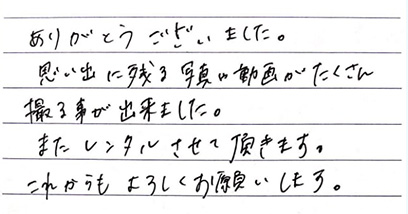 ありがとうございました。
思い出に残る写真や動画がたくさん
撮る事が出来ました。
またレンタルさせて頂きます。
これからもよろしくお願いします。